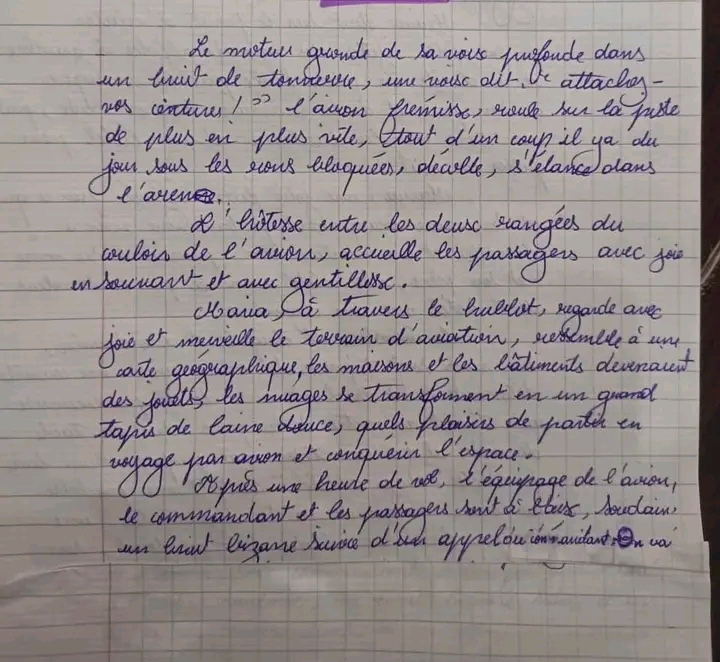 Le moteur gronde de sa voix profonde dans
un bruit de tonnerre, une voix dit : " attachez-
vos ceintures ! " l'avion fremisse, roule sur la piste
de plus en plus vite, tout d'un coup il ya du
jour sous les roues bloquées, décolle, s'élance dans
l'arene.
L'hôtesse entre les deux rangées du
couloir de l'avion, accueille les passagers avec joie
en souriant et avec gentillesse.
Maria, à travers le hublot, regarde avec
joie et merveille le terrain d'aviation, ressemble à une
carte géographique, les maisons et les bâtiments devenaient
des jouets, les nuages se transforment en un grand
tapis de laine douce, quels plaisirs de partir en
voyage par avion et conquérir l'espace.
Après une heure de vol, l'équipage de l'avion,
le commandant et les passagers sont à l'aise, soudain,
un bruit bizarre suivie d'un appel du commandant : On va